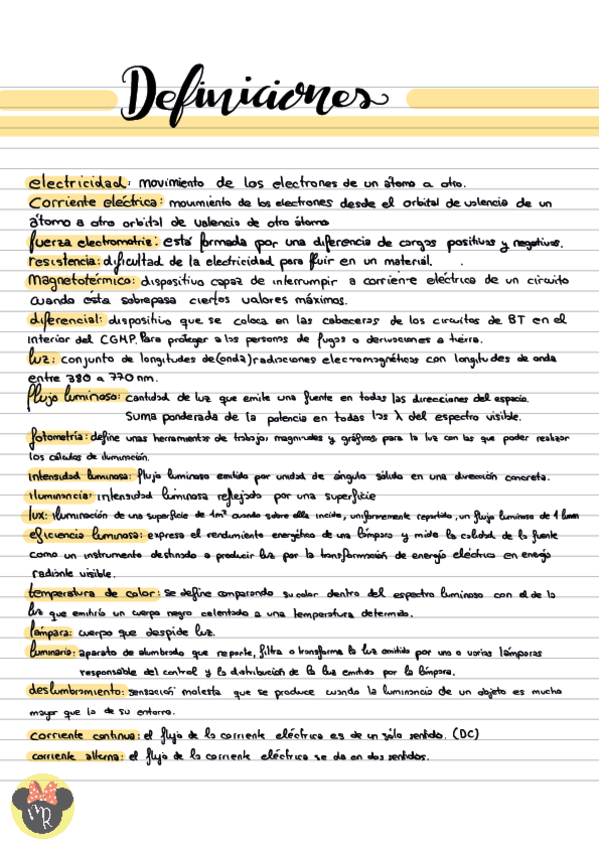 Definiciones
electricidad: movimiento de los electrones de un átomo a otro.
Corriente eléctrica: movimiento de los electrones desde el orbital de valencia de un
átomo a otro orbital de valencia de otro átomo
fuerza electromotriz: está formada por una diferencia de cargas positivas y negativas.
resistencia: dificultad de la electricidad para fluir en un material.
Magnetotérmico: dispositivo capaz de interrumpir a corriente eléctrica de un circuito
cuando ésta sobrepasa ciertos valores máximos.
diferencial: dispositivo que se coloca en las cabeceras de los circuitos de BT en el
interior del CGMP. Para proteger a las personas de fugas o derivaciones a tierra.
luz: conjunto de longitudes de (onda) radiaciones electromagnéticas con longitudes de onda
entre 380 a 770 nm.
flujo luminoso: cantidad de luz que emite una fuente en todas las direcciones del espacio.
Suma ponderada de la potencia en todas las λ del espectro visible.
fotometría: define unas herramientas de trabajo, magnitudes y gráficos para la luz con las que poder realizar
los cálculos de iluminación.
intensidad luminosa: flujo luminoso emitido por unidad de ángulo sólido en una dirección concreta.
iluminancia: intensidad luminosa reflejada por una superficie
lux: iluminación de una superficie de 1m² cuando sobre ella incide, uniformemente repartido, un flujo luminoso de 1 lumen
eficiencia luminosa: expresa el rendimiento energético de una lámpara y mide la calidad de la fuente
como un instrumento destinado a producir luz por la transformación de energía eléctrica en energía
radiante visible.
temperatura de color: se define comparando su color dentro del espectro luminoso con el de la
luz que emitiría un cuerpo negro calentado a una temperatura determinada.
lámpara: cuerpo que despide luz.
luminaria: aparato de alumbrado que reparte, filtra o transforma la luz emitida por una o varias lámparas
responsable del control y la distribución de la luz emitida por la lámpara.
deslumbramiento: sensación molesta que se produce cuando la luminancia de un objeto es mucho
mayor que la de su entorno.
corriente continua: el flujo de la corriente eléctrica es de un sólo sentido. (DC)
corriente alterna: el flujo de la corriente eléctrica se da en dos sentidos.
MR